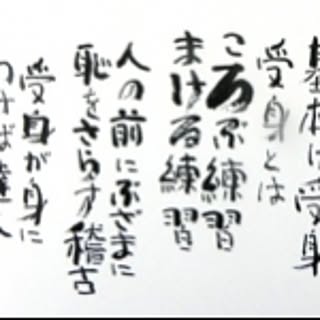 基本は受身
受身とは
ころぶ練習
まける練習
人の前にぶざまに
恥をさらす稽古
受身が身に
つけば達人